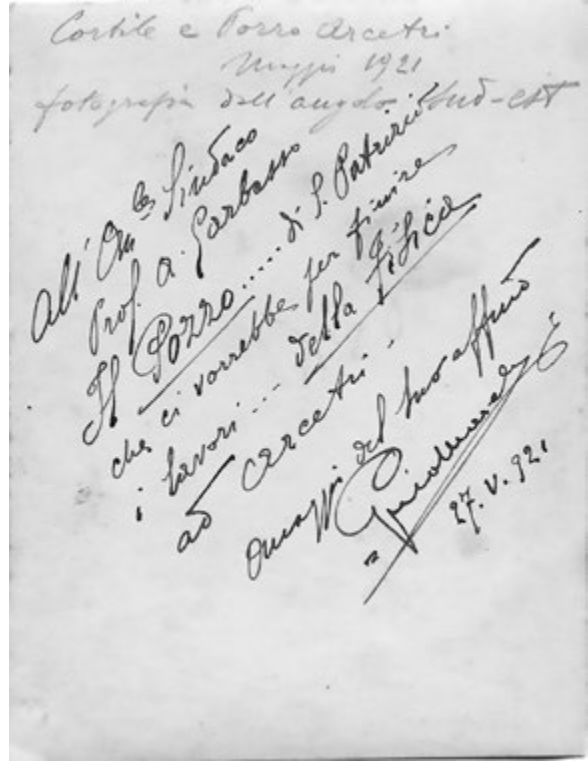 Cortile e Pozzo Arcetri
Maggio 1921
fotografia dell'angolo Sud-est
All'On.le Sindaco
Prof. A. Garbasso
Il Pozzo..... di S. Patrizio
che ci vorrebbe per finire
i lavori... della Fisica
ad Arcetri -
Omaggi del suo affmo
27.V.921